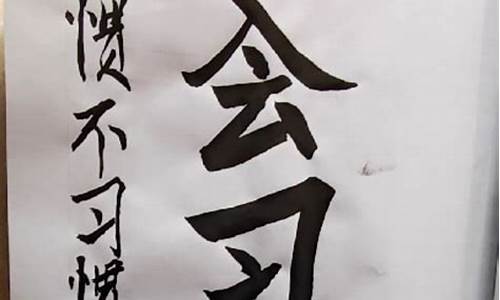 会习
惯不习惯